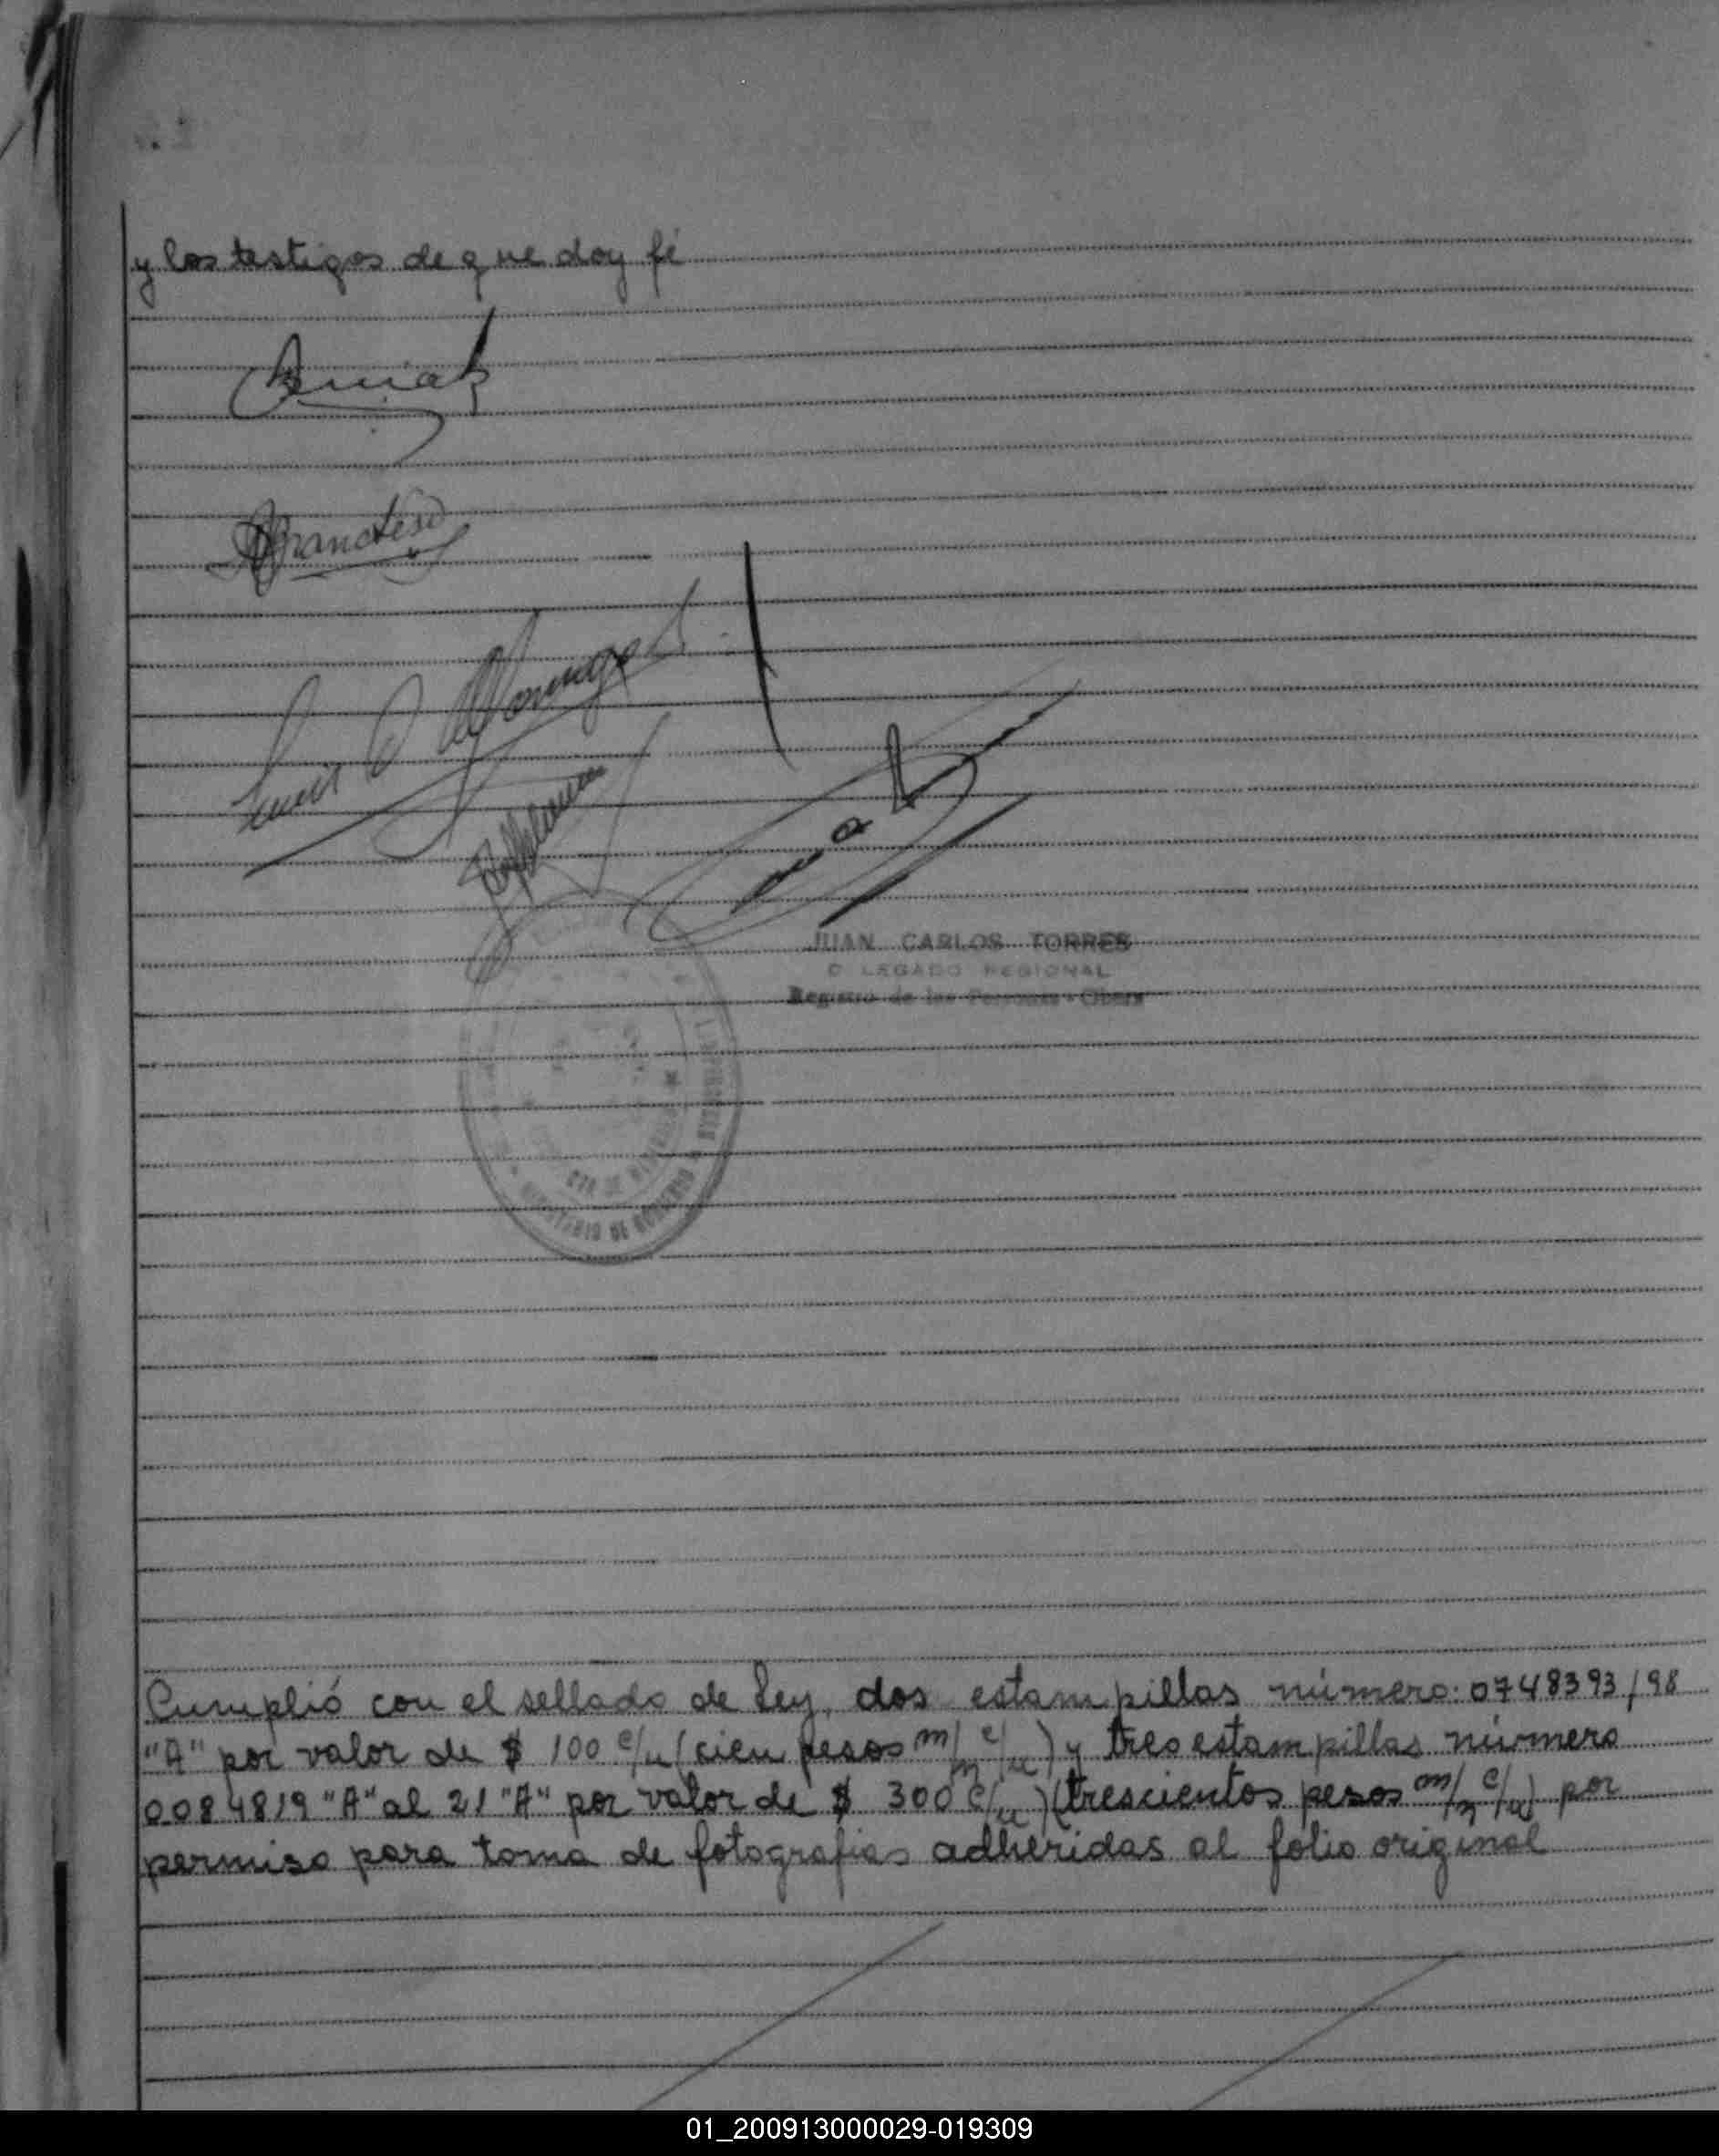 y los testigos de que doy fé
JUAN CARLOS TORRES
D LEGADO REGIONAL
Registro de las Personas - Obera
MINISTERIO DE GOBIERNO
Cumplió con el sellado de Ley, dos estampillas número: 0748393/98
"A" por valor de $ 100 c/u (cien pesos m/n c/u) y tres estampillas número
0084819 "A" al 21 "A" por valor de $ 300 c/u) (trescientos pesos m/n c/u) por
permiso para toma de fotografias adheridas al folio original
01_200913000029-019309